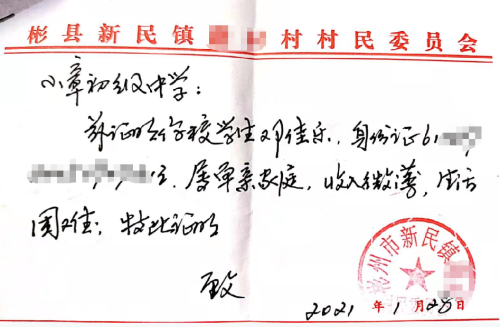 彬县新民镇 村村民委员会
小章初级中学：
兹证明你校学生邓佳乐，身份证61
属单亲家庭，收入微薄，生活
困难；特此证明
彬州市新民镇
致
2021年1月28日